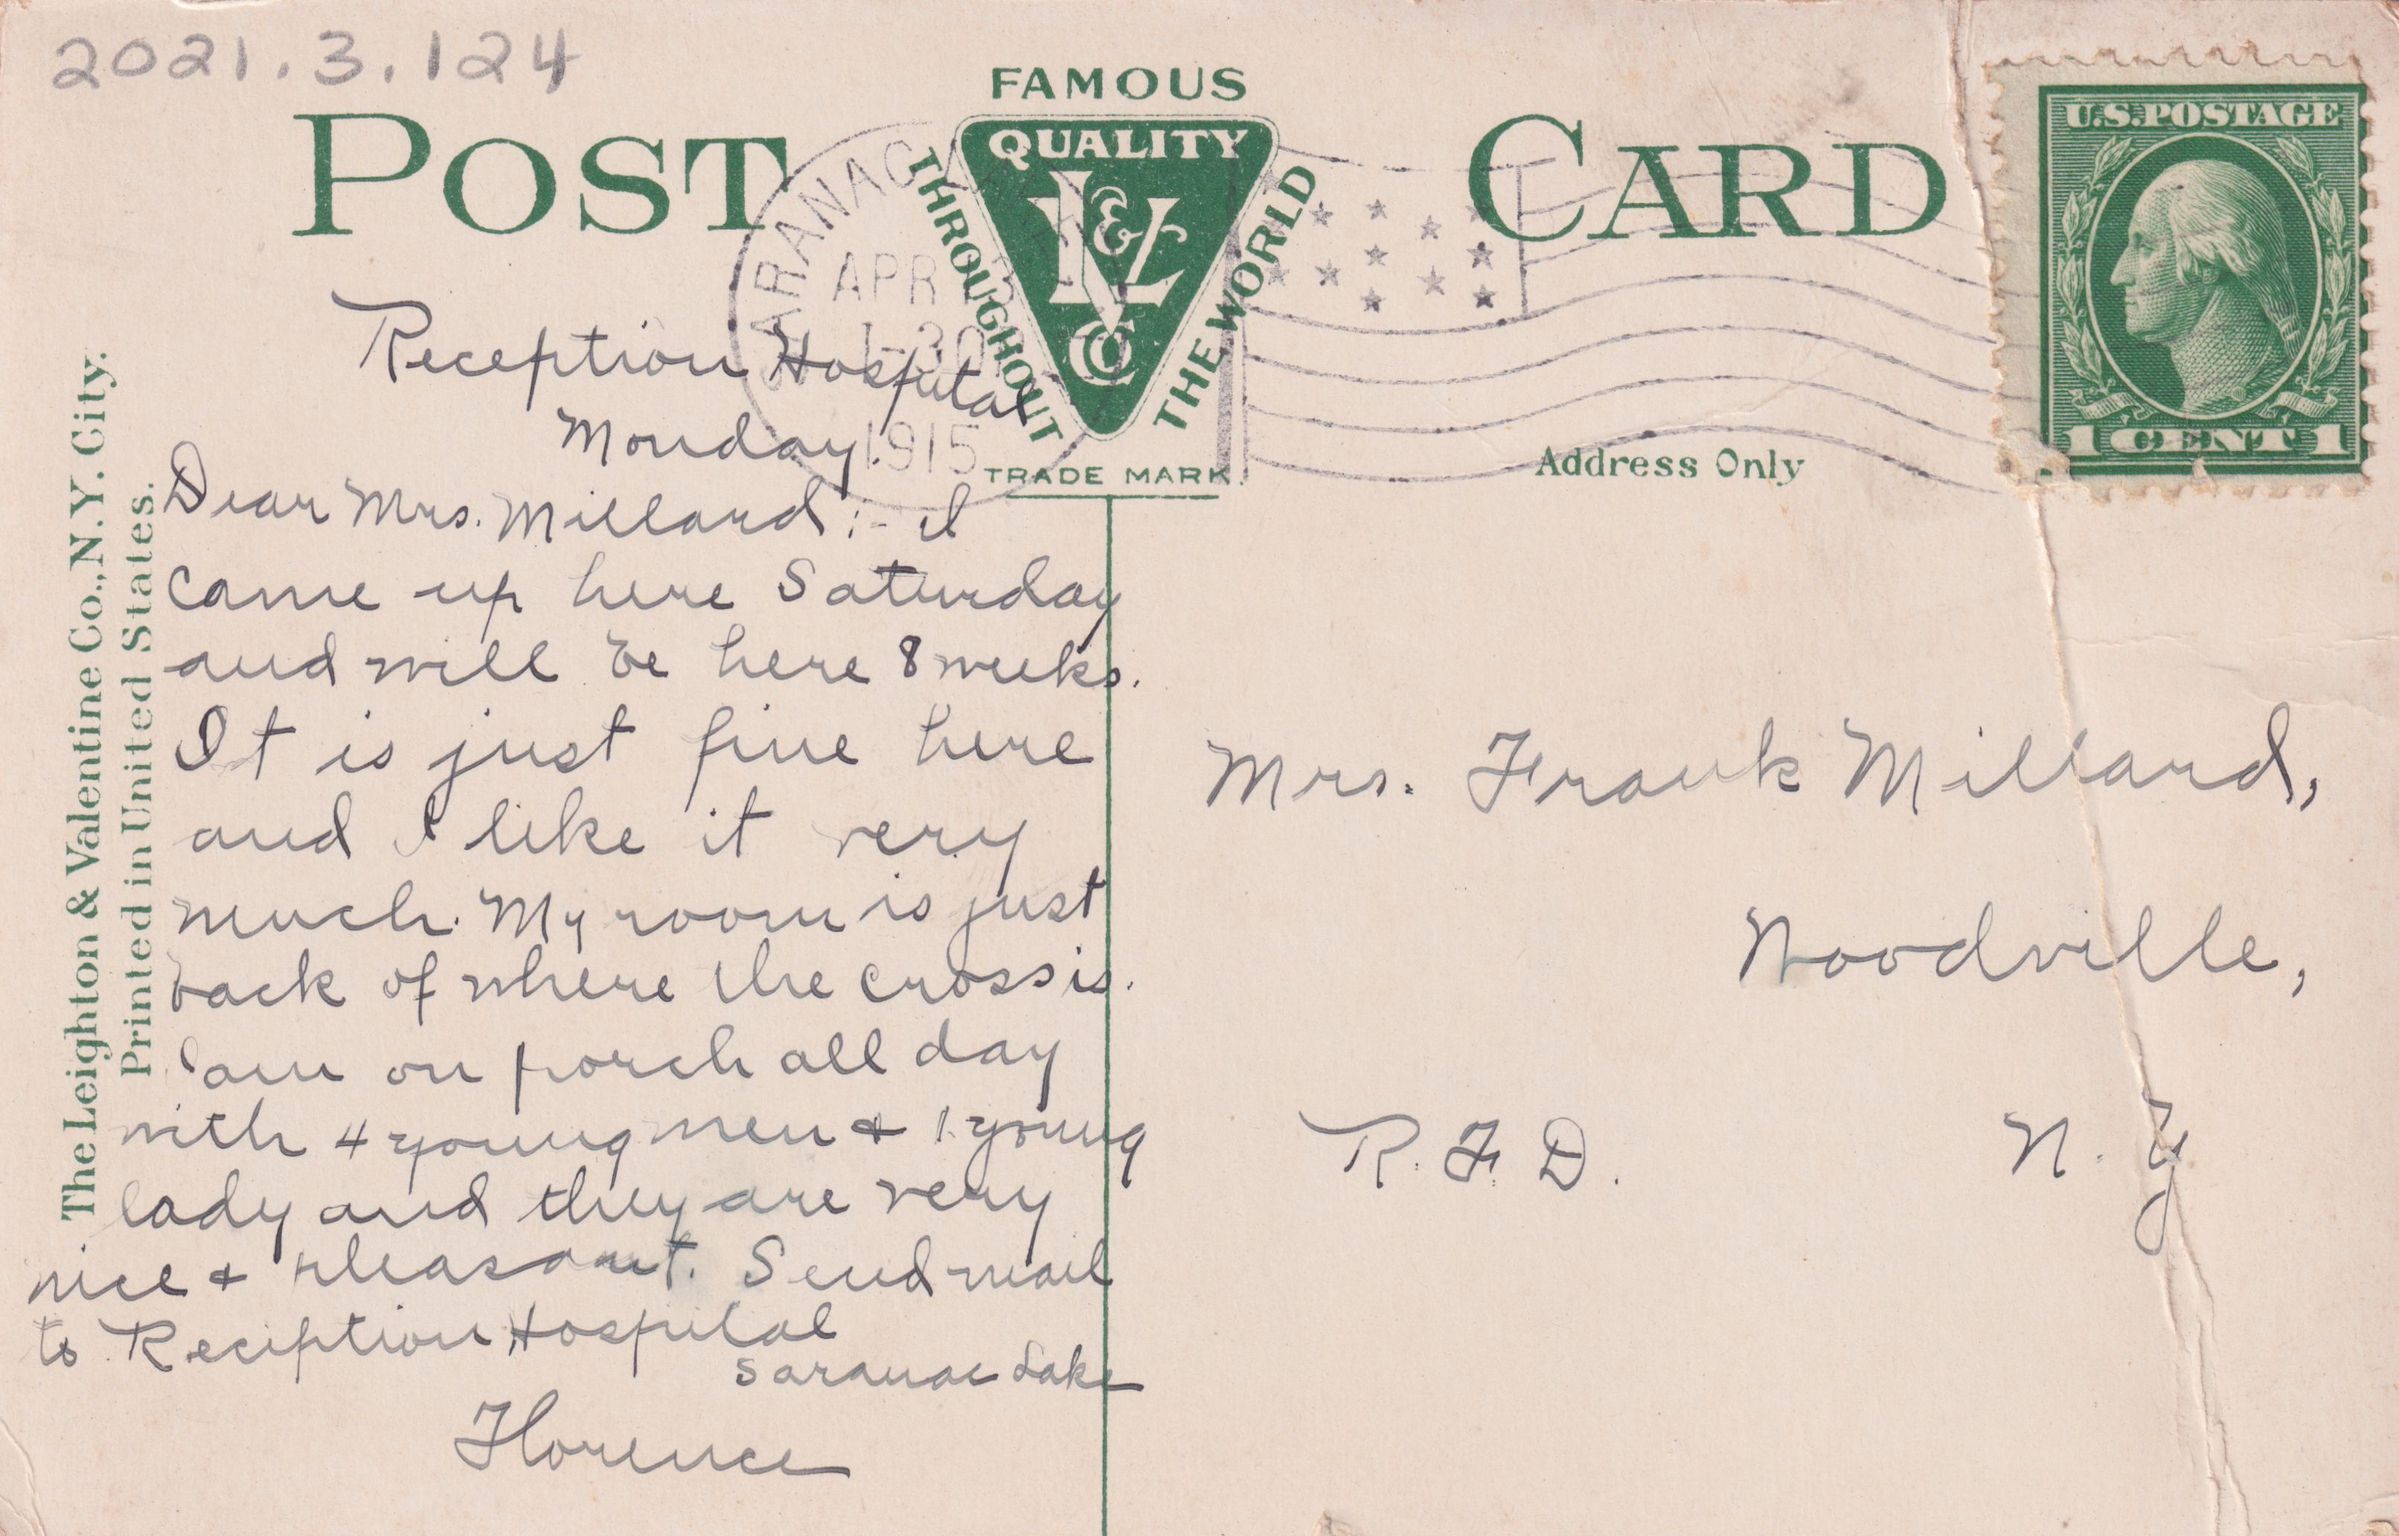 2021.3.124
POST CARD
FAMOUS
QUALITY
THROUGHOUT THE WORLD
L & V Co
TRADE MARK.
SARANAC
APR 13
1-30
1915
U.S. POSTAGE
1 CENT 1
Address Only
The Leighton & Valentine Co., N.Y. City.
Printed in United States.
Reception Hospital
Monday.
Dear Mrs. Millard:- I
came up here Saturday
and will be here 8 weeks.
It is just fine here
and I like it very
much. My room is just
back of where the cross is.
I am on porch all day
with 4 young men & 1 young
lady and they are very
nice & pleasant. Send mail
to Reception Hospital
Saranac Lake
Florence
Mrs. Frank Millard,
Woodville,
R.F.D. N.Y